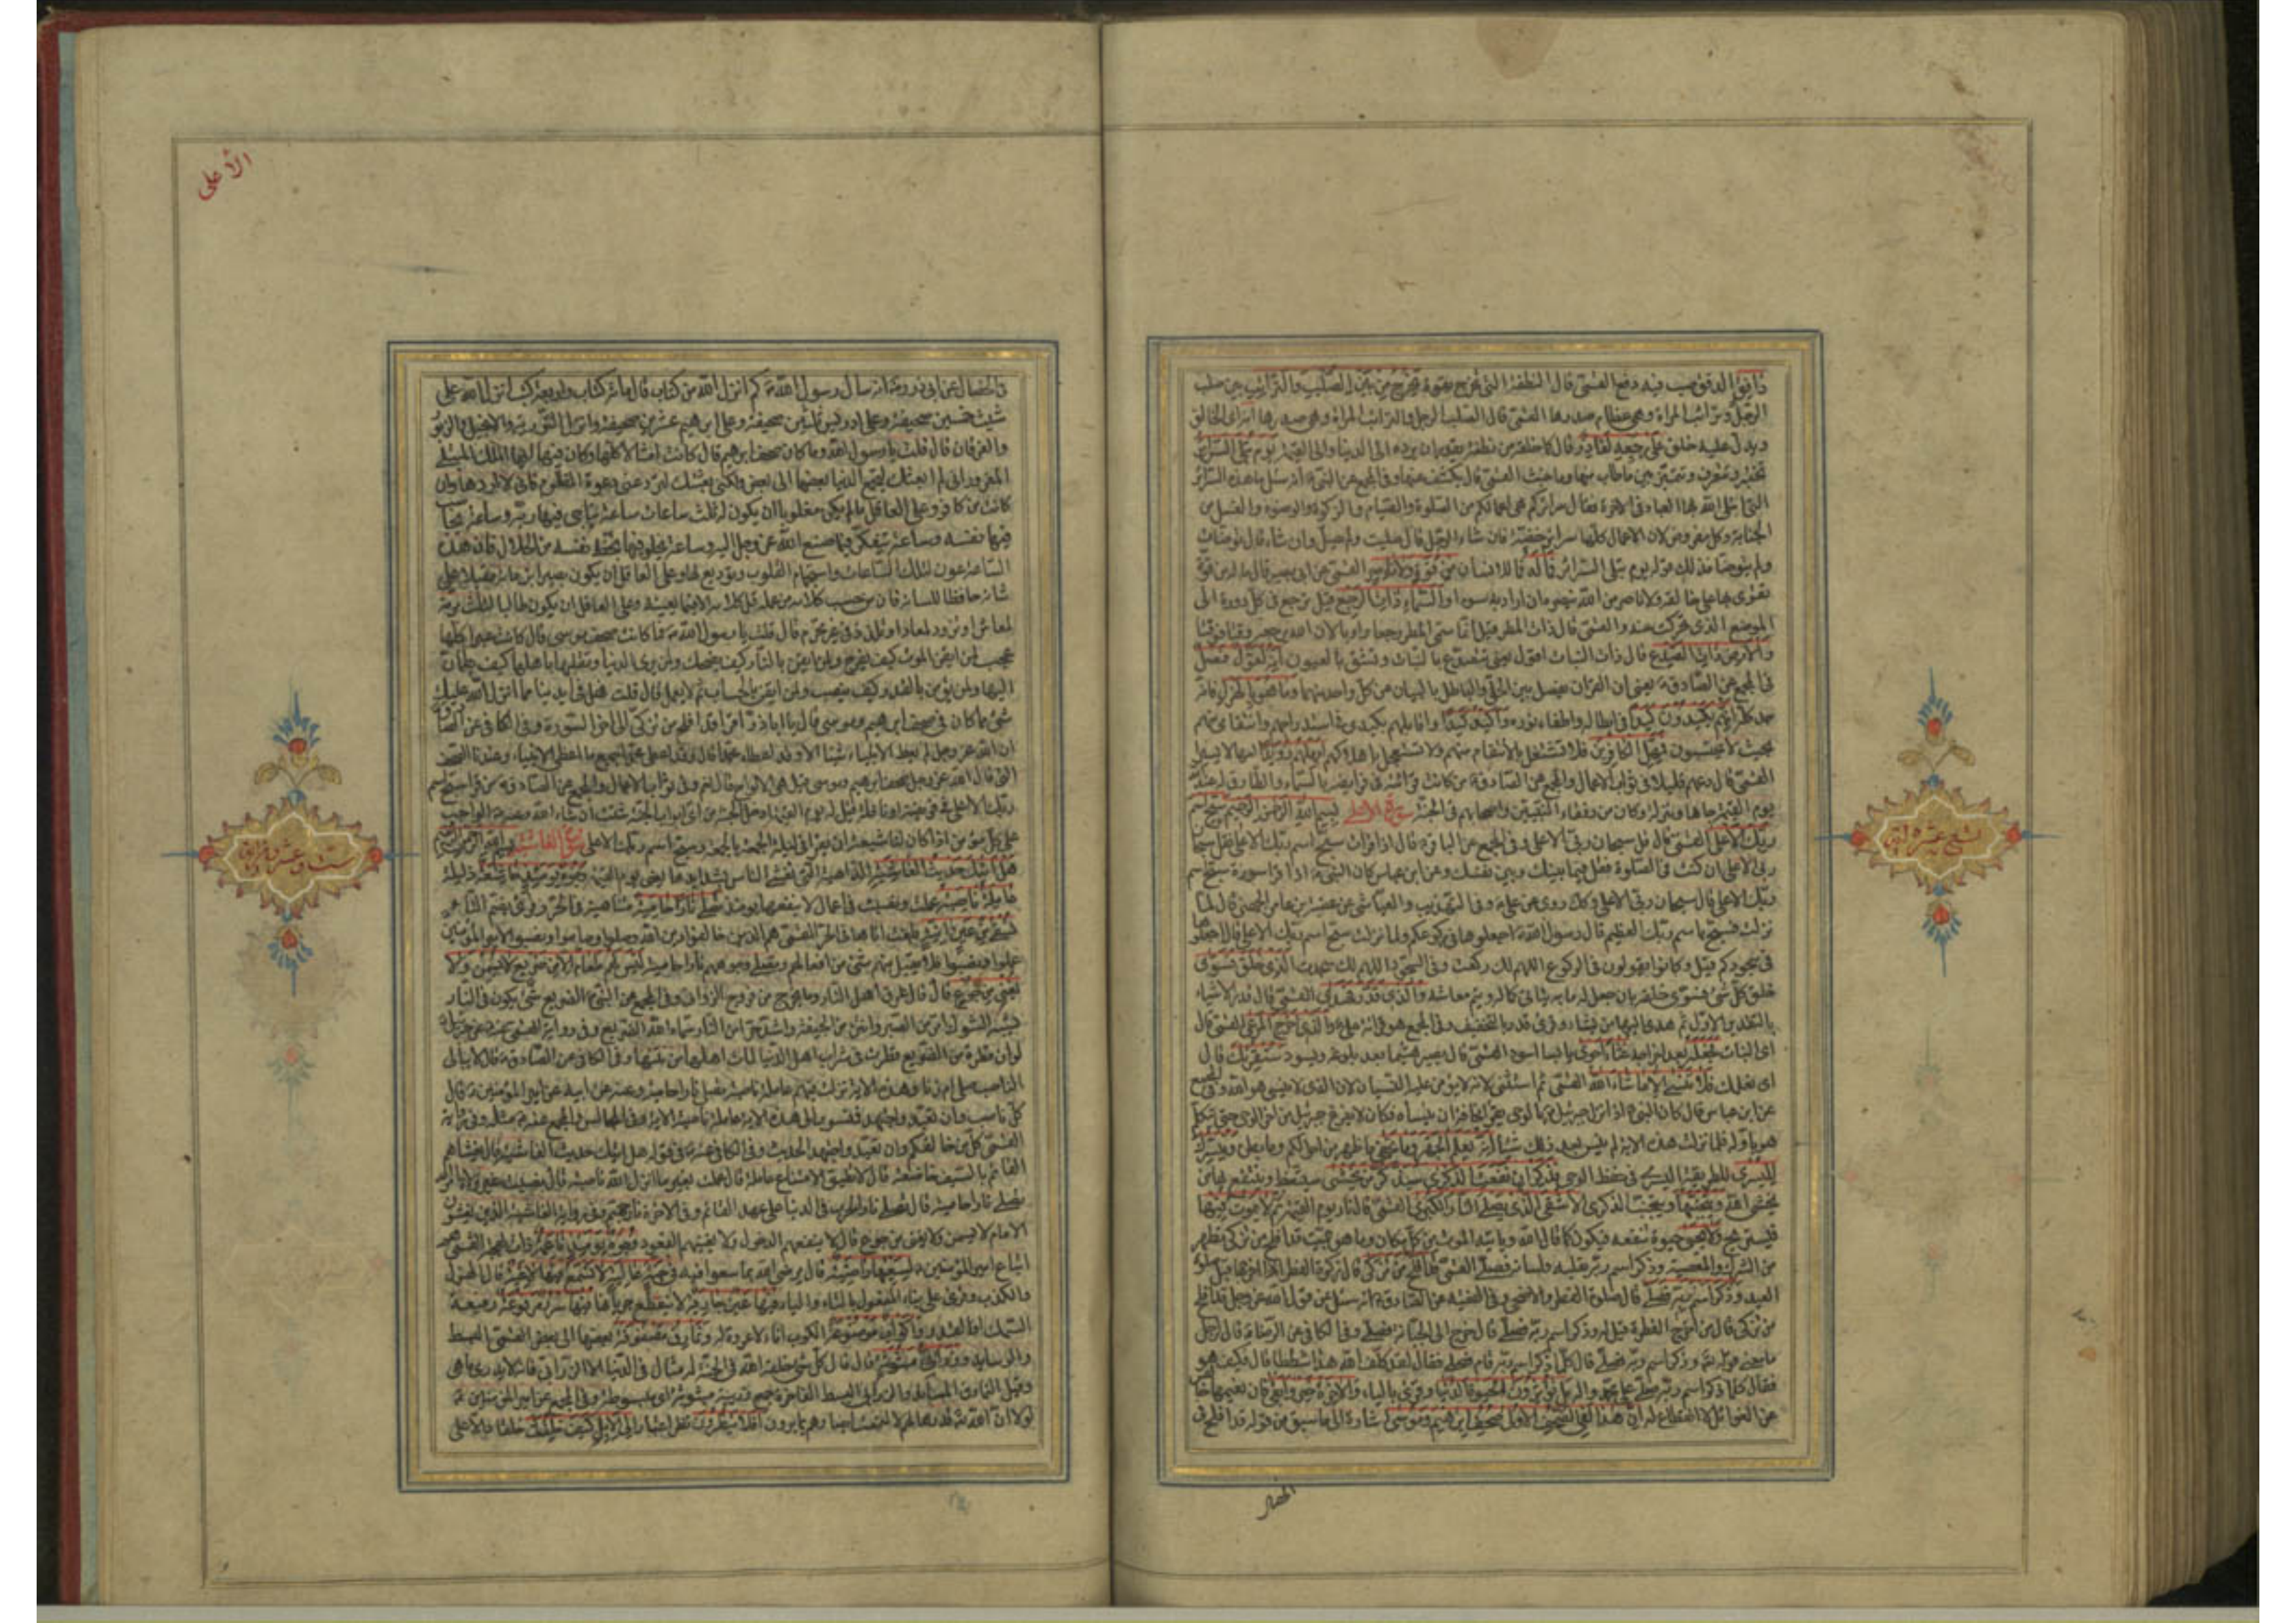 دافق الدفق صب فيه دفع القمّي قال النطفة التي تخرج بقوة يخرج من بين الصّلب والترائب بين صلب
الرجل وترائب المراة وهي عظام صدرها القمّي قال الصلب الرجل والترائب المراة وهي صدرها انه اى الخالق
ويدل عليه خلق على رجعه لقادر قال كما خلقه من نطفة يقدر ان يرده الى الدنيا والى القيمة يوم تبلى السرائر
تختبر وتتعرف وتتميز بين ما طاب منها وما خبث القمّي قال يكشف عنها وفى المجمع عن النبي انه سئل ما هذه السرائر
التي ابتلى الله بها العباد فى الاخرة فقال سرائركم هى اعمالكم من الصلوة والصيام والزكوة والوضوء والغسل من
الجنابة وكل مفروض لان الاعمال كلها سرائر خفية فان شاء الرجل قال صليت ولم يصل وان شاء قال توضأت
ولم يتوضأ فذلك قوله يوم تبلى السرائر فما له فما للانسان من قوة ولا ناصر القمّي عن ابى بصير قال ما له من قوة
يقوى بها على خالقه ولا ناصر من الله ينصره ان اراد به سوء والسّماء ذات الرجع قيل ترجع فى كل دورة الى
الموضع الذي تحركت عنه والقمّي قال ذات المطر قيل انما سمى المطر رجعا
والارض ذات الصدع قال ذات النبات اقول يعنى تتصدع بالنبات وتنشق بالعيون انه لقول فصل
فى المجمع عن الصادق يعنى ان القران يفصل بين الحق والباطل بالبيان عن كل واحد منهما وما هو بالهزل فانه
جد كله انهم يكيدون كيدا فى ابطاله واطفاء نوره واكيد كيدا واقابلهم بكيدى فى استدراجهم وانتقامى منهم
بحيث لا يحتسبون فمهّل الكافرين فلا تشتغل بالانتقام منهم ولا تستعجل باهلاكهم امهلهم رويدا امهالا يسيرا
القمّي قال دعهم قليلا فى ثواب الاعمال والمجمع عن الصادق من كانت قرائته فى فرايضه بالسّماء والطارق كان له عند الله
يوم القيمة جاها ومنزلة وكان من رفقاء النبيين واصحابهم فى الجنة سورة الاعلى بسم الله الرحمن الرحيم سبح اسم
ربك الاعلى القمّي قال قل سبحان ربى الاعلى وفى المجمع عن الباقر قال اذا قرات سبح اسم ربك الاعلى فقل سبحان
ربى الاعلى ان كنت فى الصلوة فقل فيما بينك وبين نفسك وعن ابن عباس كان النبي اذا قرا سورة سبح اسم
ربك الاعلى قال سبحان ربى الاعلى وكذلك روى عن على وفى التهذيب والعياشى عن عقبة بن عامر الجهنى قال لما
نزلت فسبح باسم ربك العظيم قال رسول الله اجعلوها فى ركوعكم ولما نزلت سبح اسم ربك الاعلى قال اجعلوها
فى سجودكم قيل وكانوا يقولون فى الركوع اللهم لك ركعت وفى السجود اللهم لك سجدت الذى خلق فسوى
خلق كل شئ فسوى خلقه بان جعل له ما به يتاتى كماله ويتم معاشه والذى قدر فهدى القمّي قال قدر الاشياء
بالتقدير الاول ثم هدى اليها من يشاء وقرئ قدر بالتخفيف وفى المجمع هو قرائة على والذى اخرج المرعى القمّي قال
اى النبات فجعله بعد اخراجه غثاء احوى يابسا اسود القمّي قال يصير هشيما بعد بلوغه ويسود سنقرئك قال
اى نعلمك فلا تنسى الا ما شاء الله القمّي ثم استثنى لانه لا يؤمن عليه النسيان لان الذى لا ينسى هو الله وفى المجمع
عن ابن عباس قال كان النبي اذا نزل جبرئيل بالوحى يقرأ مخافة ان ينساه فكان لا يفرغ جبرئيل من اخر الوحى حتى يتكلم
هو باوله فلما نزلت هذه الاية لم ينس بعد ذلك شيئا انه يعلم الجهر وما يخفى ما ظهر من احوالكم وما بطن ونيسرك
لليسرى للطريقة اليسرى فى حفظ الوحى فذكر ان نفعت الذكرى سيذكر من يخشى سيتعظ وينتفع بها من
يخشى الله ويتجنبها ويتجنب الذكرى الاشقى الذى يصلى النار الكبرى القمّي قال نار يوم القيمة ثم لا يموت فيها
فيستريح ولا يحيى حيوة تنفعه فيكون كما قال الله وياتيه الموت من كل مكان وما هو بميت قد افلح من تزكى تطهر
من الشرك والمعصية وذكر اسم ربه بقلبه ولسانه فصلى القمّي قد افلح من تزكى قال زكوة الفطر اذا اخرجها قبل صلوة
العيد وذكر اسم ربه فصلى قال صلوة الفطر والاضحى وفى الفقيه عن الصادق انه سئل عن قول الله عز وجل قد افلح
من تزكى قال من اخرج الفطرة قيل له وذكر اسم ربه فصلى قال خرج الى الجبانة فصلى وفى الكافى عن الرضا قال لرجل
ما معنى قوله تعالى وذكر اسم ربه فصلى قال كلما ذكر اسم ربه قام فصلى فقال لقد كلف الله هذا شططا قال فكيف هو
فقال كلما ذكر اسم ربه صلى على محمد واله بل تؤثرون الحيوة الدنيا وقرئ بالياء والاخرة خير وابقى فان نعيمها خالص
عن الغوائل لا انقطاع له ان هذا لفى الصحف الاولى صحف ابرهيم وموسى اشارة الى ما سبق من قوله قد افلح فى
الخصال
تسع عشرة اية
الأعلى
والخصال عن ابى ذر انه سال رسول الله كم انزل الله من كتاب قال مائة كتاب واربعة كتب انزل الله على
شيث خمسين صحيفة وعلى ادريس ثلثين صحيفة وعلى ابرهيم عشرين صحيفة وانزل التورية والانجيل والزبور
والفرقان قال قلت يا رسول الله وما كان صحف ابرهيم قال كانت امثالا كلها وكان فيها ايها الملك المبتلى
المغرور انى لم ابعثك لتجمع الدنيا بعضها الى بعض ولكنى بعثتك لترد عنى دعوة المظلوم فانى لا اردها وان
كانت من كافر وعلى العاقل ما لم يكن مغلوبا ان يكون له ثلث ساعات ساعة يناجى فيها ربه وساعة يحاسب
فيها نفسه وساعة يتفكر فيما صنع الله عز وجل اليه وساعة يخلو فيها بحظ نفسه من الحلال فان هذه
الساعة عون لتلك الساعات واستجمام القلوب وتوديع لها وعلى العاقل ان يكون بصيرا بزمانه مقبلا على
شانه حافظا للسانه فان من حسب كلامه من عمله قل كلامه الا فيما يعنيه وعلى العاقل ان يكون طالبا لثلث مرمة
لمعاش او تزود لمعاد او تلذذ فى غير محرم قال قلت يا رسول الله فما كانت صحف موسى قال كانت عبرا كلها
عجب لمن ايقن بالموت كيف يفرح ولمن ايقن بالنار كيف يضحك ولمن يرى الدنيا وتقلبها باهلها كيف يطمئن
اليها ولمن يؤمن بالقدر كيف ينصب ولمن ايقن بالحساب ثم لا يعمل قال قلت فهل فى ايدينا مما انزل الله عليك
شئ مما كان فى صحف ابرهيم وموسى قال يا اباذر اقرا قد افلح من تزكى الى اخر السورة وفى الكافى عن الصادق
ان الله عز وجل لم يعط الانبياء شيئا الا وقد اعطاه محمدا قال وقد اعطى محمدا جميع ما اعطى الانبياء وعندنا الصحف
التى قال الله عز وجل صحف ابرهيم وموسى قيل هى الالواح قال نعم وفى ثواب الاعمال والمجمع عن الصادق من قرا سبح اسم
ربك الاعلى فى فريضة او نافلة قيل له يوم القيمة ادخل الجنة من اى ابواب الجنة شئت ان شاء الله
على كل مؤمن اذا كان لنا شيعة ان يقرا فى ليلة الجمعة بالجمعة وسبح اسم ربك الاعلى سورة الغاشية بسم الله الرحمن الرحيم
هل اتيك حديث الغاشية الداهية التى تغشى الناس بشدايدها يعنى يوم القيمة وجوه يومئذ خاشعة ذليلة
عاملة ناصبة عملت ونصبت فى اعمال لا ينفعها يومئذ تصلى نارا حامية متناهية فى الحر
تسقى من عين انية بلغت اناها فى الحر القمّي هم الذين خالفوا دين الله وصلوا وصاموا ونصبوا لامير المؤمنين
عملوا ونصبوا فلا يقبل منهم شئ من افعالهم وتصلى وجوههم نارا حامية ليس لهم طعام الا من ضريع لا يسمن ولا
يغنى من جوع قال قال عرق اهل النار وما يخرج من فروج الزوانى وفى المجمع عن النبي الضريع شئ يكون فى النار
يشبه الشوك امر من الصبر وانتن من الجيفة واشد حرا من النار سماه الله الضريع وفى رواية القمّي عن جبرئيل
لو ان قطرة من الضريع قطرت فى شراب اهل الدنيا لمات اهلها من نتنها وفى الكافى عن الصادق قال لا يبالى
الناصب صلى ام زنا وهذه الاية نزلت فيهم عاملة ناصبة تصلى نارا حامية وعنه عن ابيه عن امير المؤمنين قال
كل ناصب وان تعبد واجتهد فمنسوب الى هذه الاية عاملة ناصبة الاية وفى المجالس والمجمع عنه مثله وفى رواية
القمّي كل من خالفكم وان تعبد واجتهد الحديث وفى الكافى عنه فى قوله هل اتيك حديث الغاشية قال يغشاهم
القائم بالسيف خاشعة قال لا تطيق الامتناع عاملة قال عملت بغير ما انزل الله ناصبة قال نصبت غير ولاة الامر
تصلى نارا حامية قال تصلى نار الحرب فى الدنيا على عهد القائم وفى الاخرة نار جهنم وفى رواية الغاشية الذين يغشون
الامام لا يسمن ولا يغنى من جوع قال لا ينفعهم الدخول ولا يغنيهم القعود وجوه يومئذ ناعمة ذات بهجة القمّي هم
اتباع امير المؤمنين لسعيها راضية قال يرضى الله بما سعوا فيه فى جنة عالية لا تسمع فيها لاغية قال الهزل
والكذب وقرئ على بناء المفعول بالتاء والياء فيها عين جارية لا ينقطع جريها فيها سرر مرفوعة رفيعة
السمك او القدر واكواب موضوعة الكوب اناء لا عروة له ونمارق مصفوفة بعضها الى بعض القمّي البسط
والوسايد وزرابى مبثوثة قال قال كل شئ خلقه الله فى الجنة له مثال فى الدنيا الا الزرابى فانه لا يدرى ما هى
وقيل النمارق المساند والزرابى البسط الفاخرة جمع زربية مبثوثة اى مبسوطة وفى المجمع عن امير المؤمنين
لولا ان الله قدرها لهم لالتمعت ابصارهم بما يرون افلا ينظرون نظر اعتبار الى الابل كيف خلقت خلقا دالا على
ست وعشرون اية